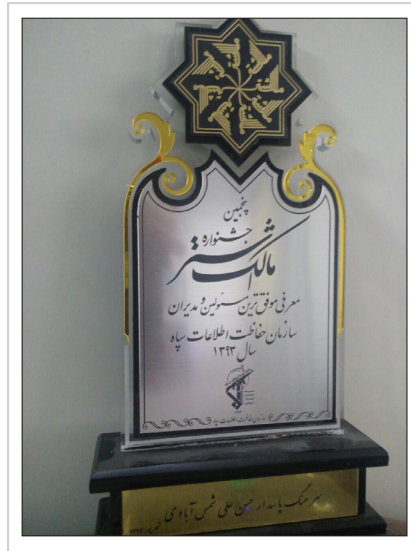 پنجمین
جشنواره
مالک اشتر
معرفی موفق ترین مسئولین و مدیران
سازمان حفاظت اطلاعات سپاه
سال ۱۳۹۳
سازمان حفاظت اطلاعات سپاه
سرهنگ پاسدار حسن علی شمس آبادی